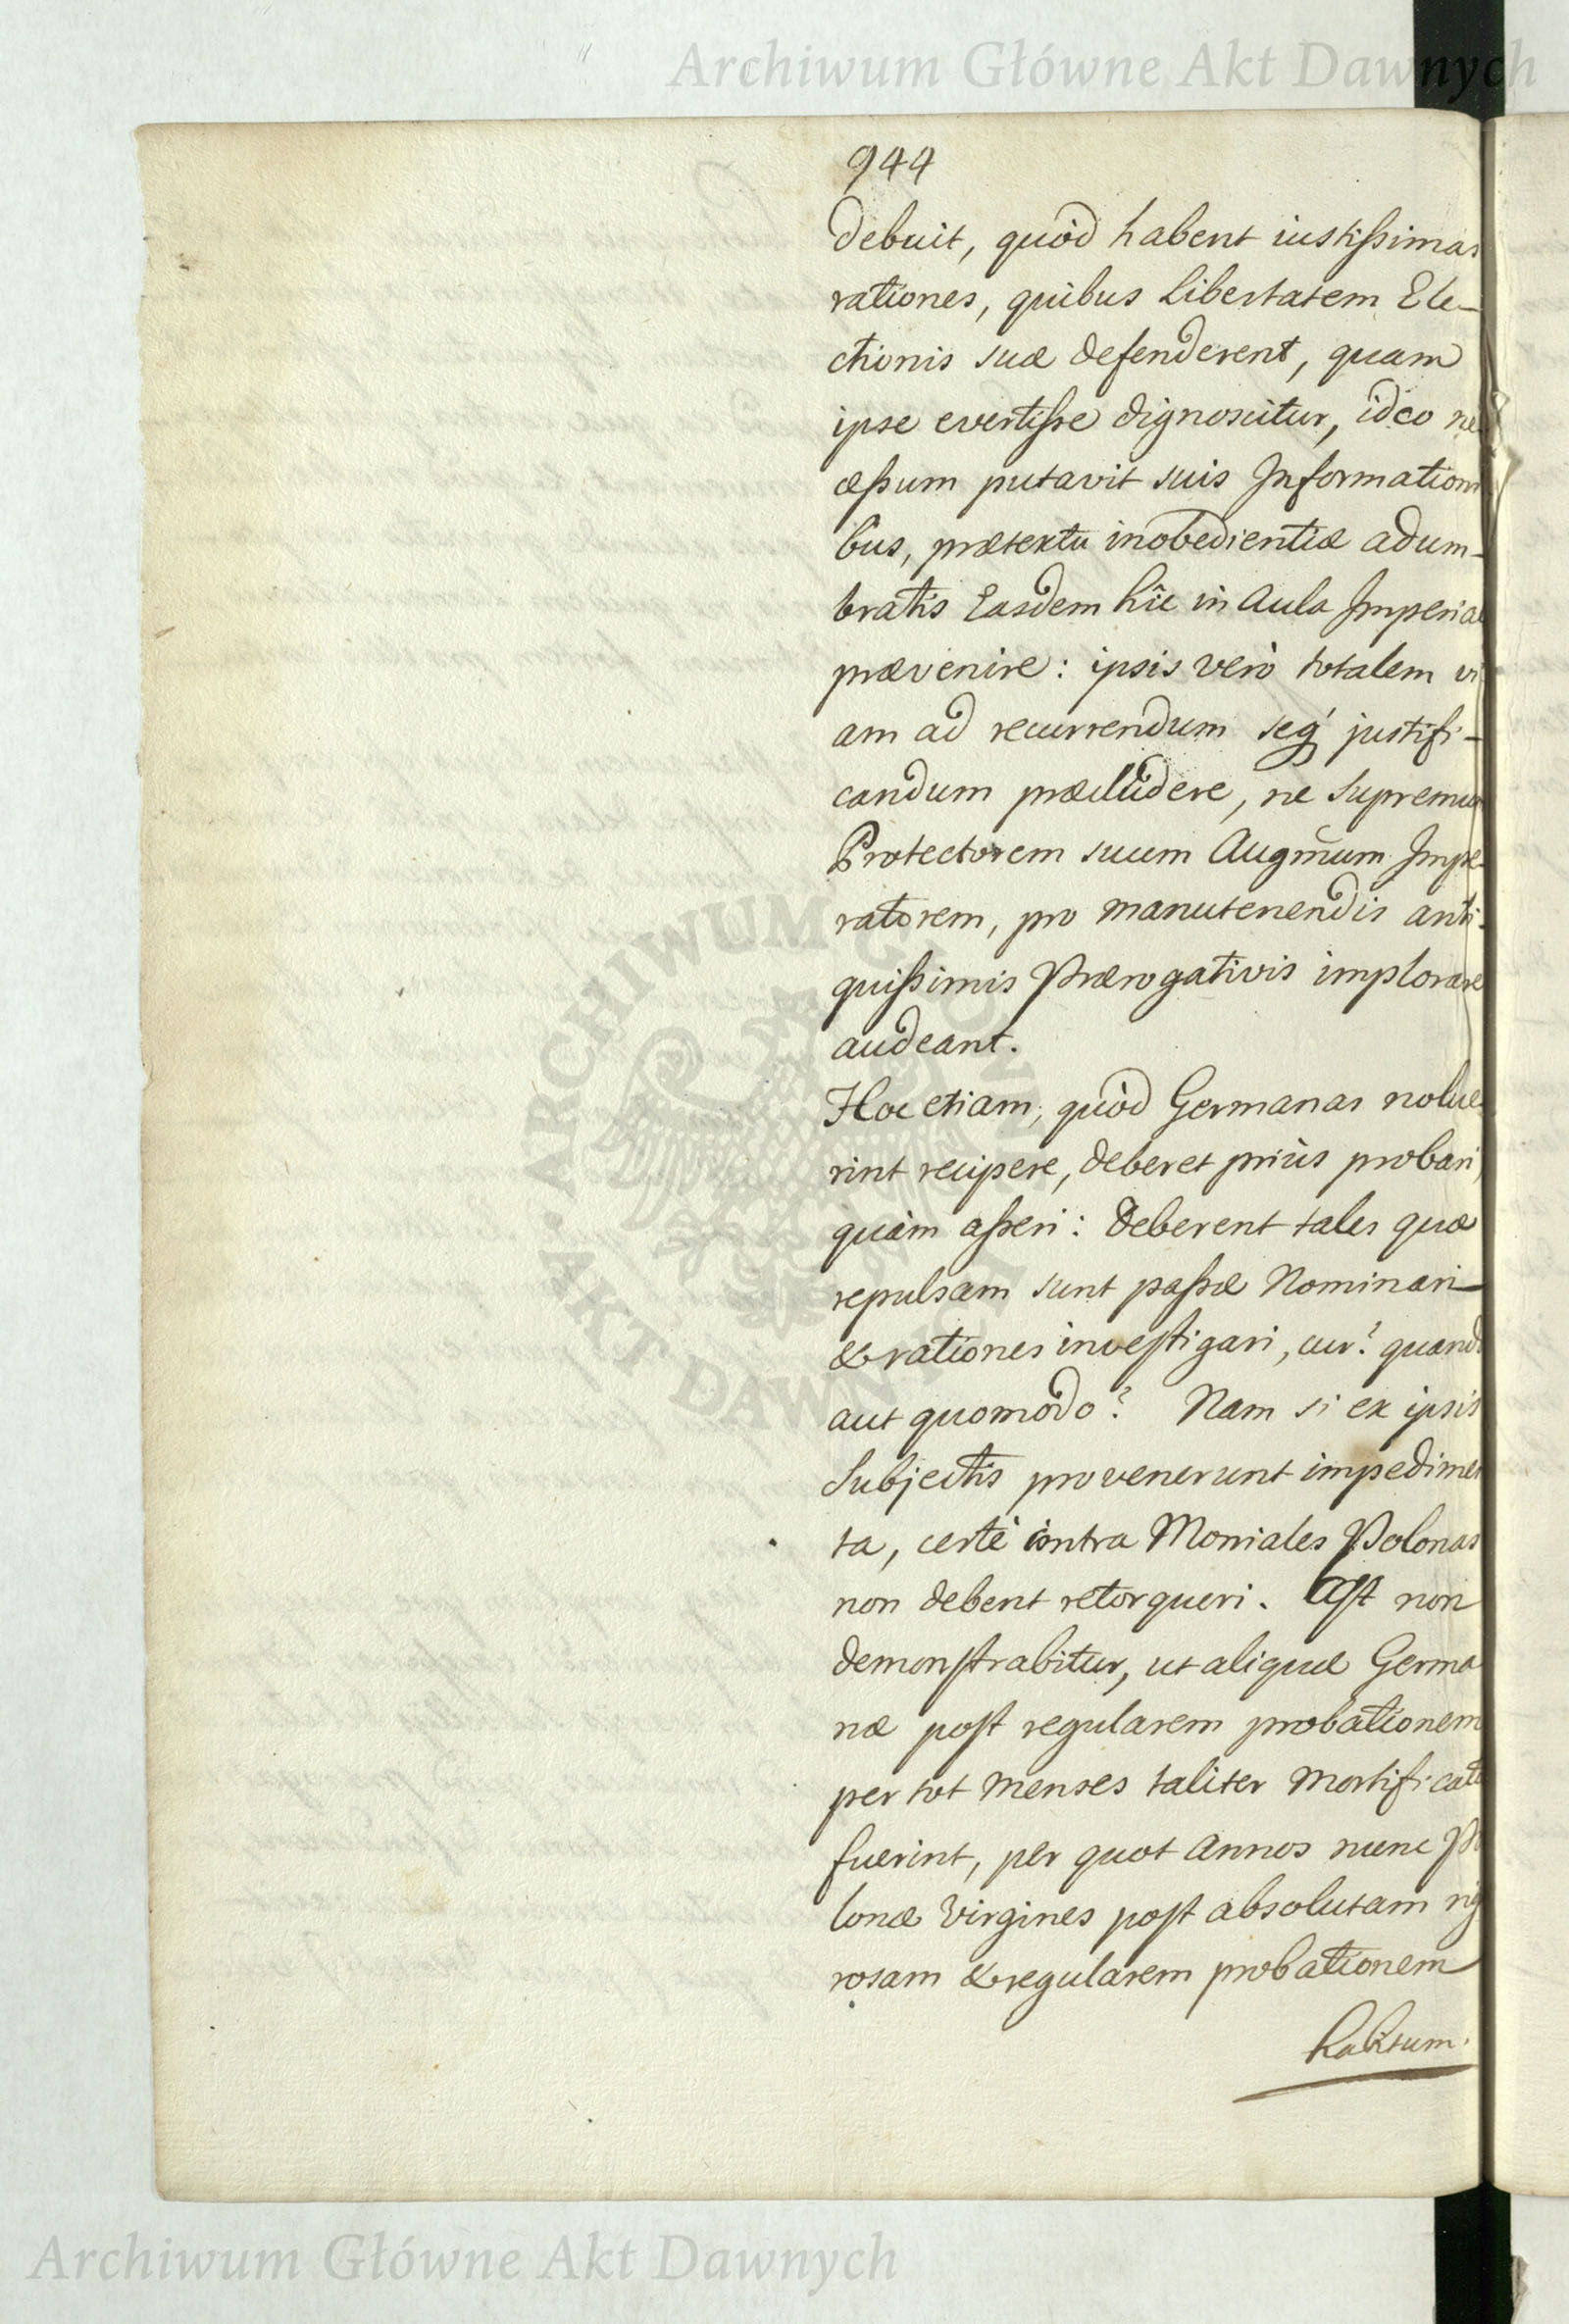 Archiwum Główne Akt Dawnych
944
debuit, quòd habent iustissimas
rationes, quibus Libertatem Ele-
ctionis suæ defenderent, quam
ipse evertisse dignoscitur, ideo ne
cessum putavit suis Informationi
bus, prætextu inobedientiæ adum-
bratis Easdem hîc in Aula Imperial
prævenire: ipsis verò totalem vi
am ad recurrendum seq́ justifi-
candum præcludere, ne Supremum
Protectorem suum Augm̃um Impe-
ratorem, pro manutenendis anti-
quissimis Prærogativis implorare
audeant.
Hoc etiam, quòd Germanas nolue
rint recipere, deberet priùs probari,
quàm asseri: deberent tales quæ
repulsam sunt passæ Nominari
& rationes investigari, cur? quando
aut quomodo? Nam si ex ipsis
Subjectis provenerunt impedimen
ta, certè contra Moniales Polonas
non debent retorqueri. Ast non
demonstrabitur, ut aliquæ Germa
næ post regularem probationem
per tot menses taliter mortificatæ
fuerint, per quot Annos nunc Po
lonæ Virgines post absolutam rig
rosam & regularem probationem
ARCHIWUM GŁÓWNE AKT DAWNYCH
Archiwum Główne Akt Dawnych